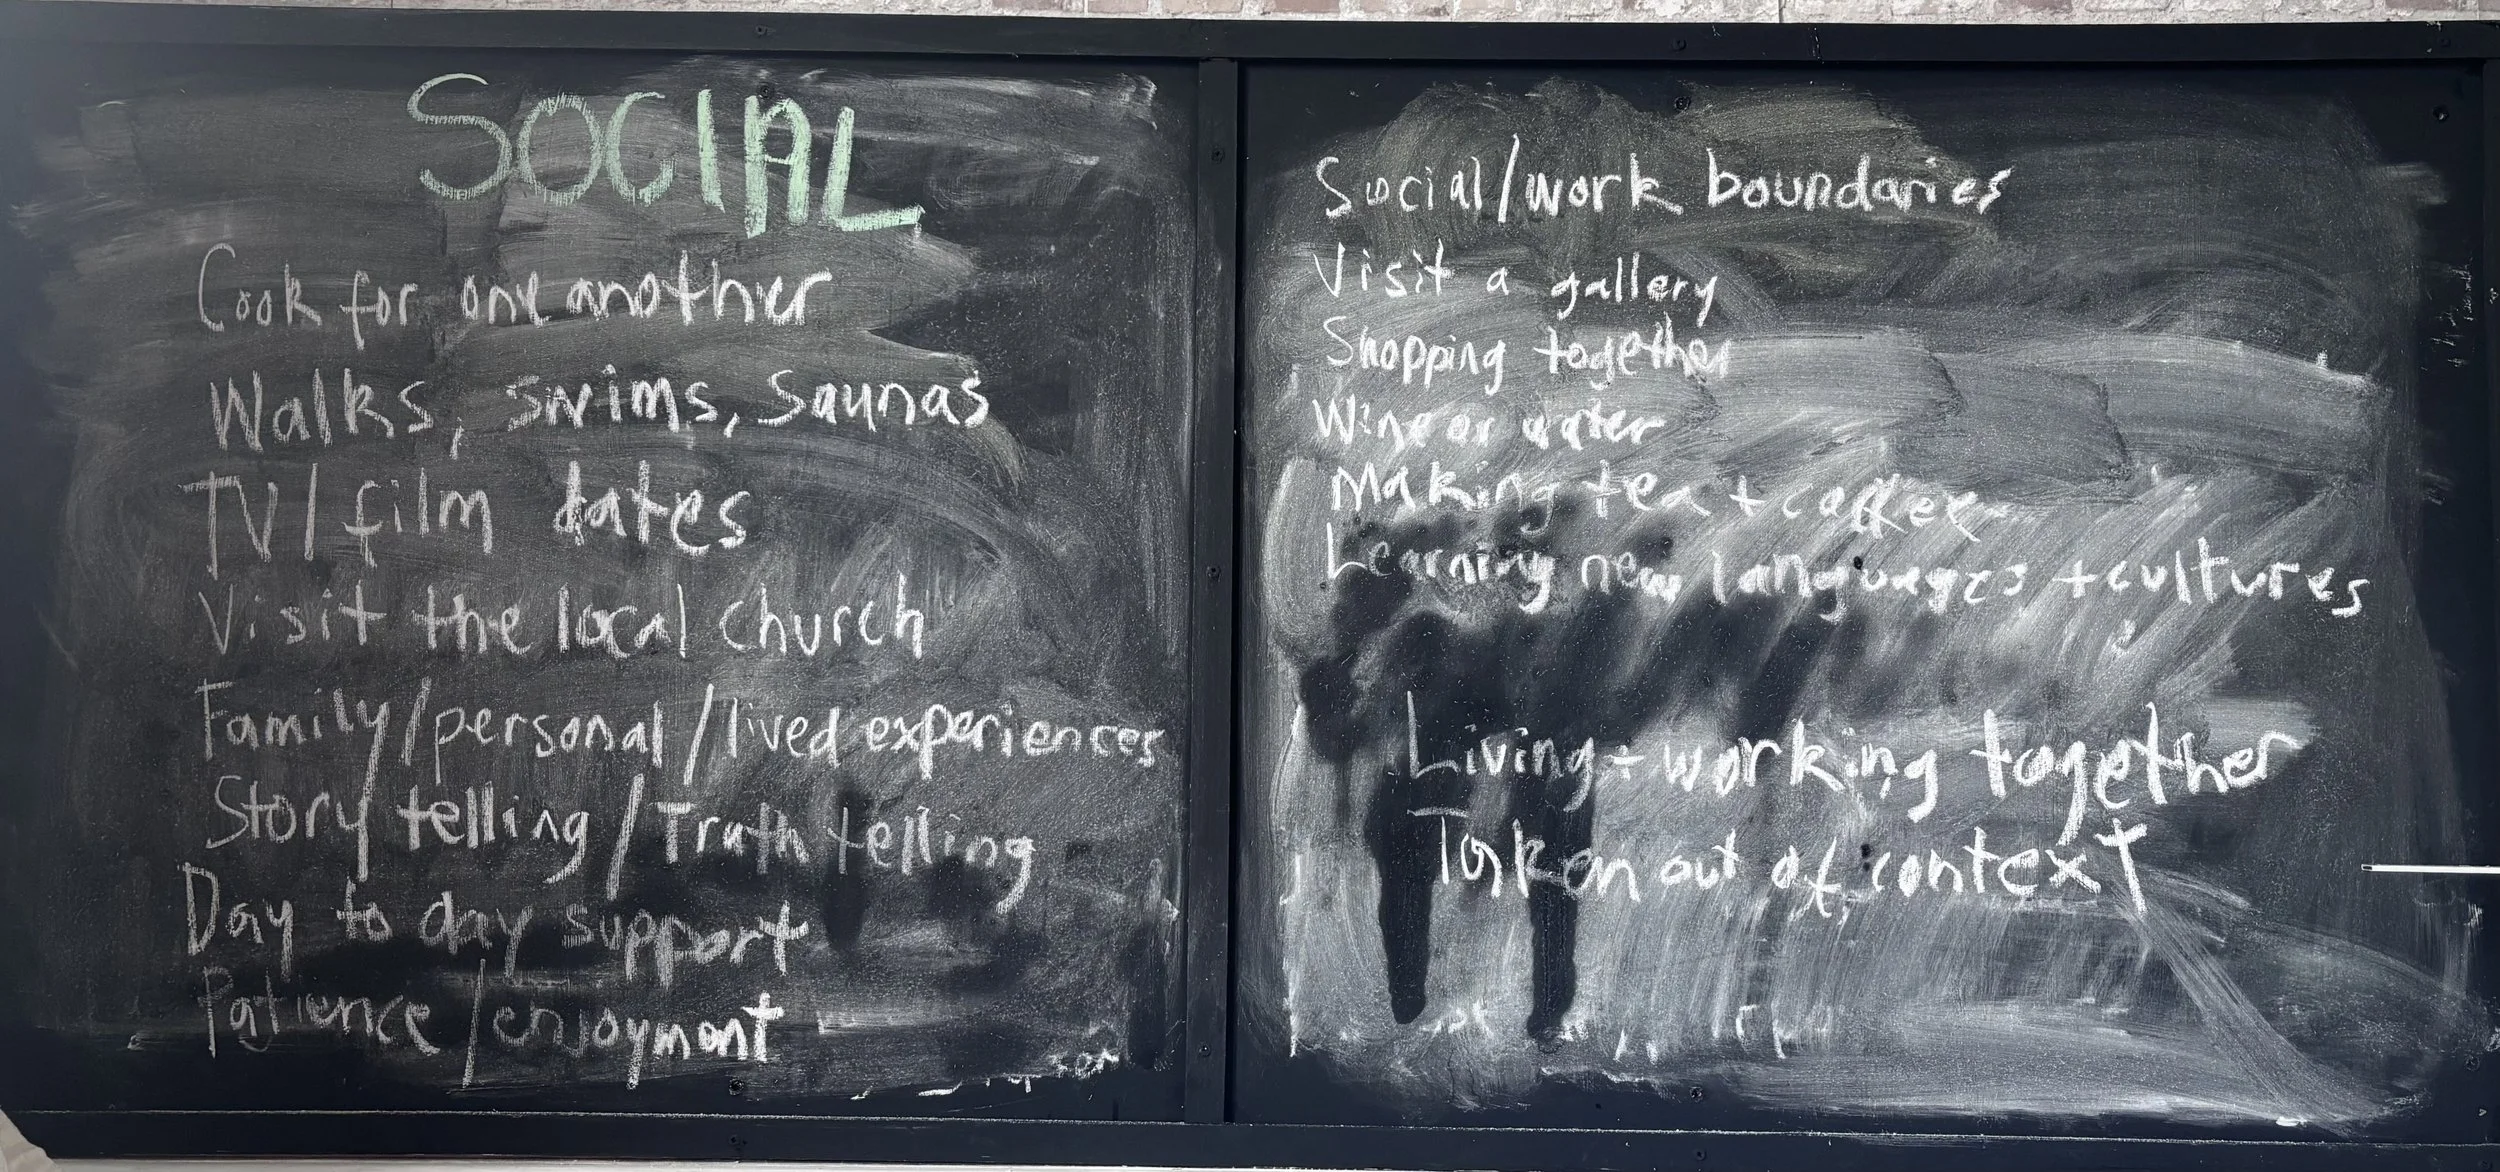 SOCIAL
Cook for one another
Walks, swims, saunas
TV/film dates
Visit the local church
Family/personal/lived experiences
Story telling/Truth telling
Day to day support
Patience/enjoyment
Social/work boundaries
Visit a gallery
Shopping together
Wine or water
Making tea + coffee
Learning new languages + cultures
Living + working together
Taken out of context